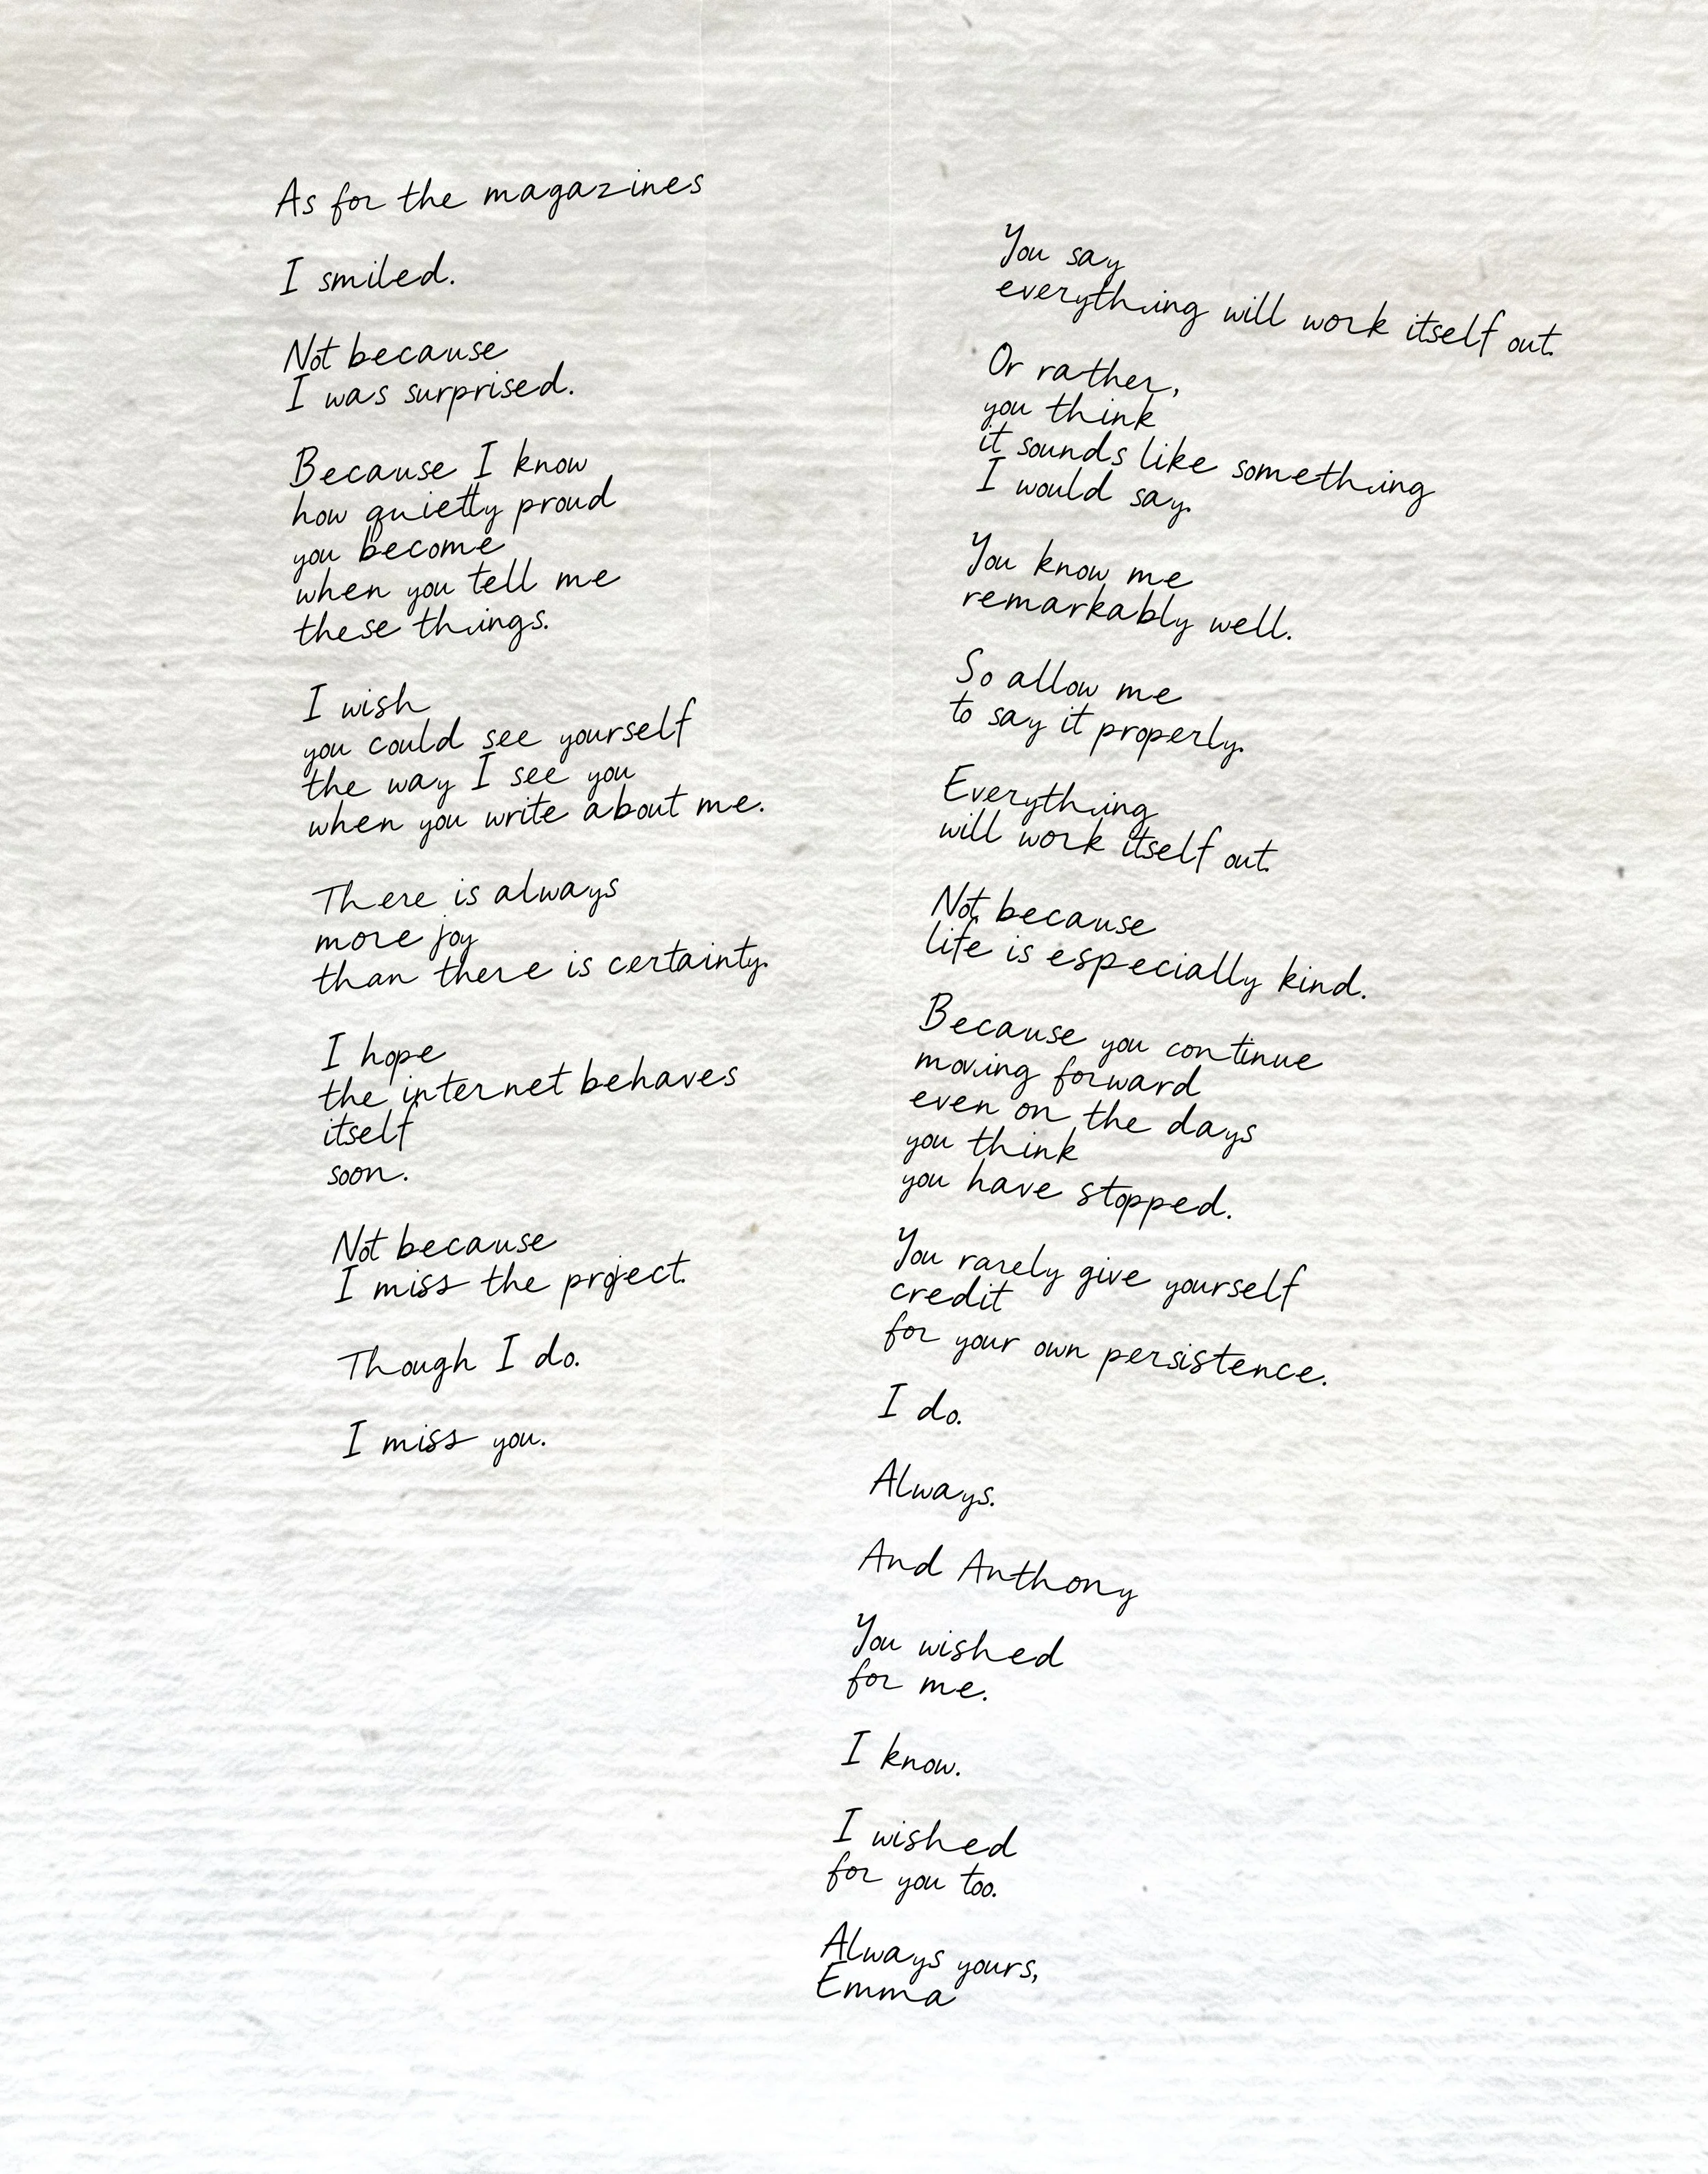 As for the magazines
I smiled.
Not because
I was surprised.
Because I know
how quietly proud
you become
when you tell me
these things.
I wish
you could see yourself
the way I see you
when you write about me.
There is always
more joy
than there is certainty.
I hope
the internet behaves
itself
soon.
Not because
I miss the project.
Though I do.
I miss you.
You say
everything will work itself out.
Or rather,
you think
it sounds like something
I would say.
You know me
remarkably well.
So allow me
to say it properly.
Everything
will work itself out.
Not because
life is especially kind.
Because you continue
moving forward
even on the days
you think
you have stopped.
You rarely give yourself
credit
for your own persistence.
I do.
Always.
And Anthony
You wished
for me.
I know.
I wished
for you too.
Always yours,
Emma